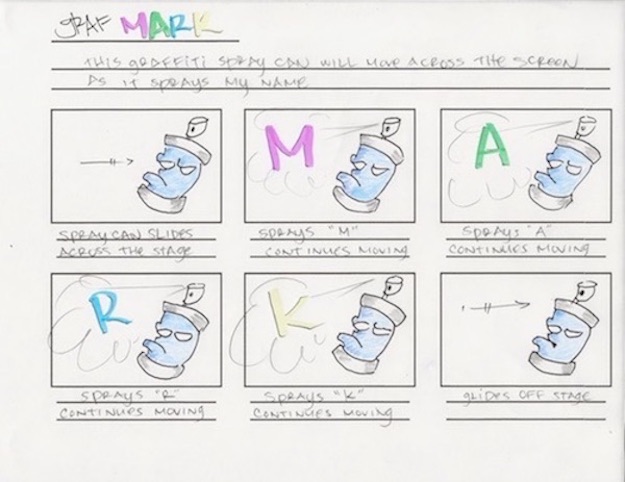 GRAF MARK
THIS GRAFFITI SPRAY CAN WILL MOVE ACROSS THE SCREEN
AS IT SPRAYS MY NAME
M
A
SPRAY CAN SLIDES
ACROSS THE STAGE
SPRAYS "M"
CONTINUES MOVING
SPRAYS "A"
CONTINUES MOVING
R
K
SPRAYS "R"
CONTINUES MOVING
SPRAYS "K"
CONTINUES MOVING
GLIDES OFF STAGE